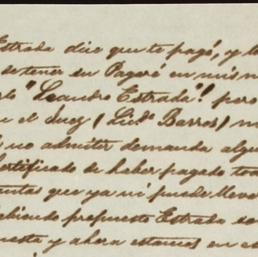 Estrada dice que te pagó, y te
obtener su Pagaré en mis m
"Leandro Estrada"! pero
e el Juez (Licdo Barros) m
no admitir demanda algu
certificado de haber pagado to
que ya ni puede lleva
habiendo propuesto Estrada se
y ahora estamos en es